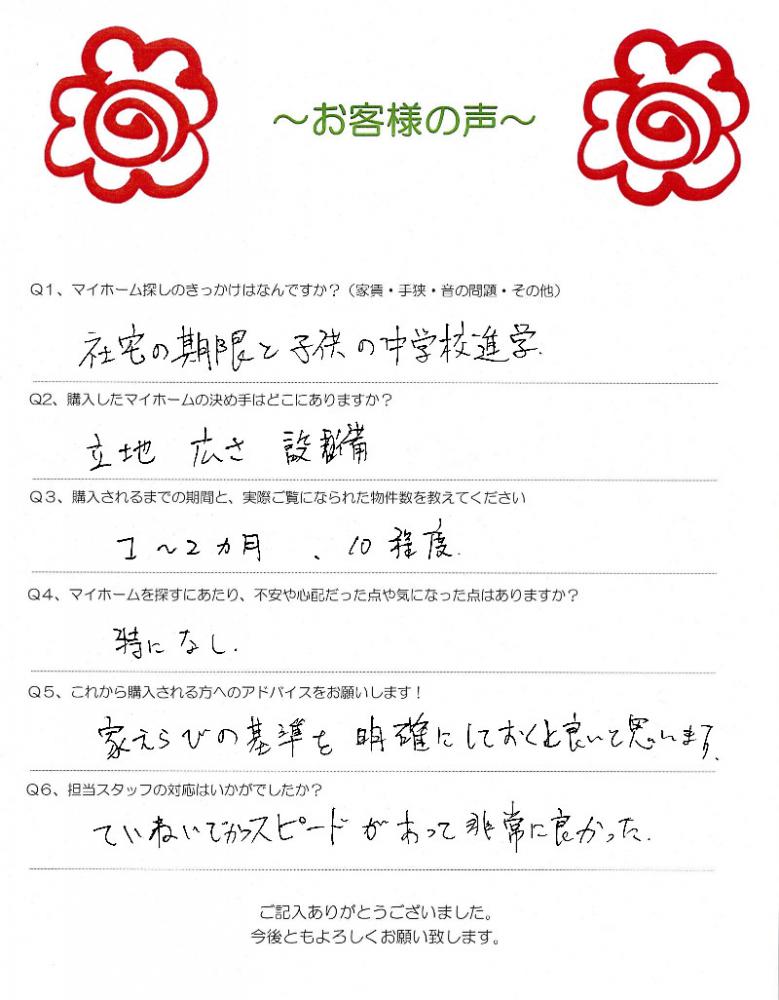 ～お客様の声～
Q1、マイホーム探しのきっかけはなんですか？（家賃・手狭・音の問題・その他）
社宅の期限と子供の中学校進学.
Q2、購入したマイホームの決め手はどこにありますか？
立地 広さ 設備
Q３、購入されるまでの期間と、実際ご覧になられた物件数を教えてください
1～2カ月 、10程度.
Q４、マイホームを探すにあたり、不安や心配だった点や気になった点はありますか？
特になし.
Q５、これから購入される方へのアドバイスをお願いします！
家えらびの基準を明確にしておくと良いと思います.
Q６、担当スタッフの対応はいかがでしたか？
ていねいでかつスピードがあって非常に良かった.
ご記入ありがとうございました。
今後ともよろしくお願い致します。